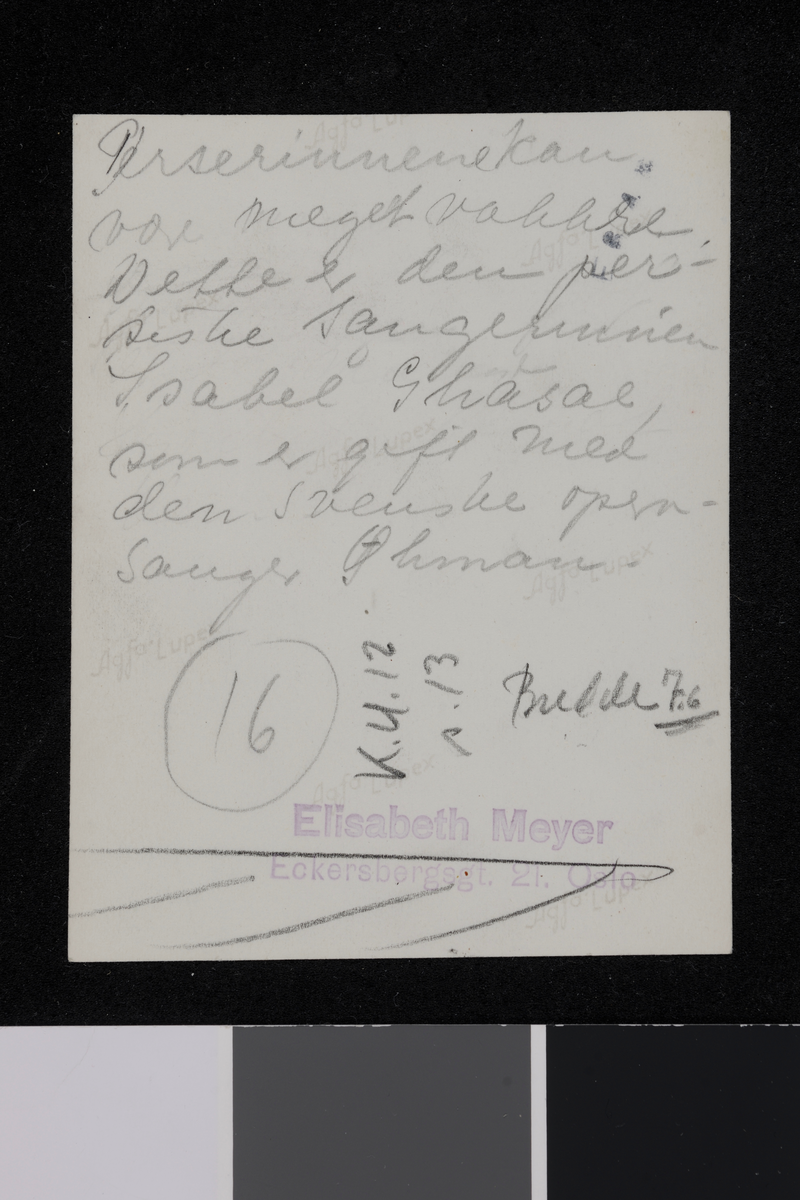 Perserinnene kan
være meget vakkre.
Dette er den per-
siske sangerinnen
Isabel Ghasal,
som er gift med
den svenske opera-
sanger Øhman.
16
K.U.12
s.13
Bredde 7.6
Elisabeth Meyer
Eckersbergsgt. 21. Oslo
Agfa-Lupex
Agfa-Lupex
Agfa-Lupex
Agfa-Lupex
Agfa-Lupex
Agfa-Lupex
Agfa-Lupex
Agfa-Lupex